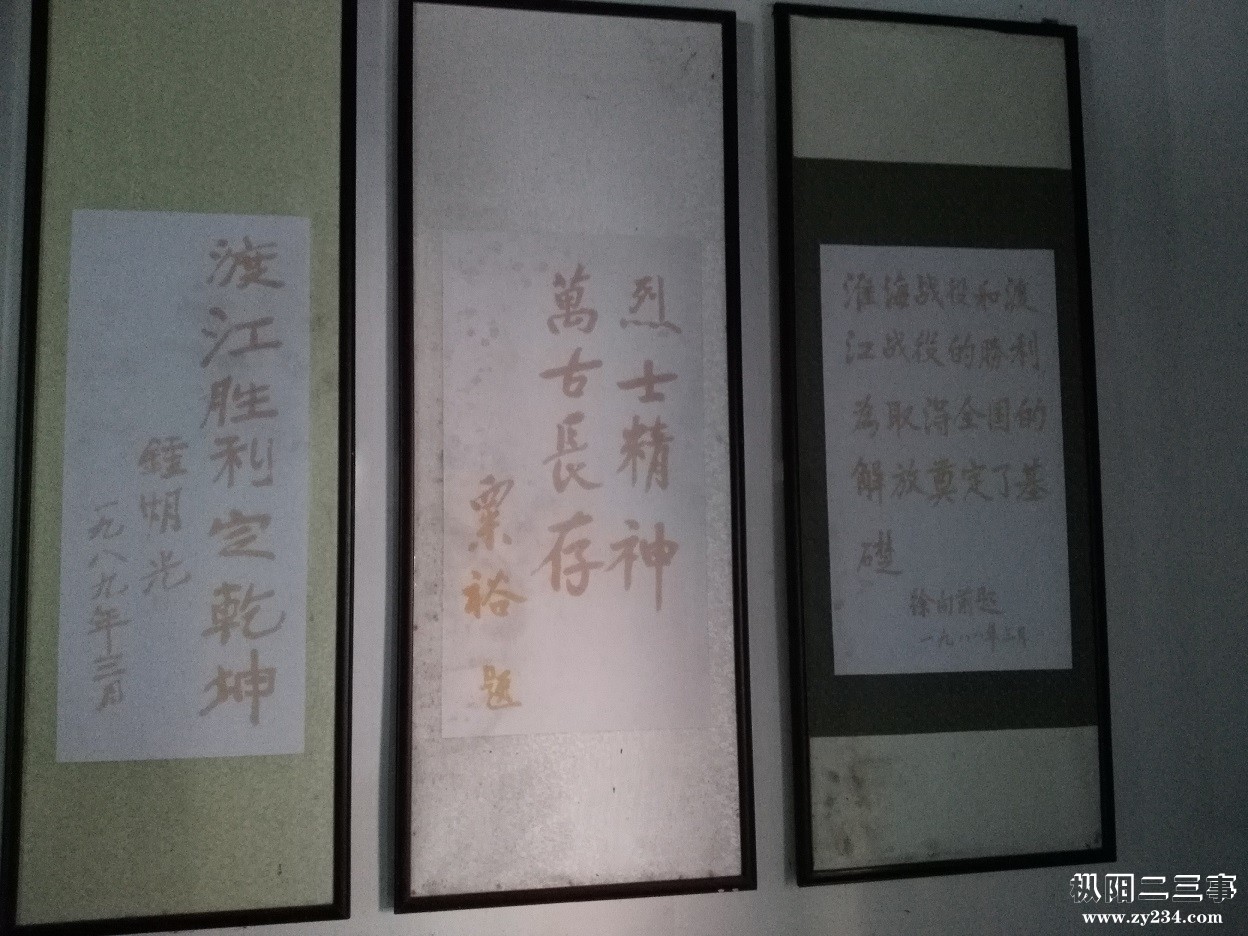 渡江胜利定乾坤
鍾明光
一九八九年三月
烈士精神
萬古長存
粟裕 题
淮海战役和渡
江战役的勝利
為取得全国的
解放奠定了基
礎
徐向前题
一九八八年三月
枞阳二三事
www.zy234.com